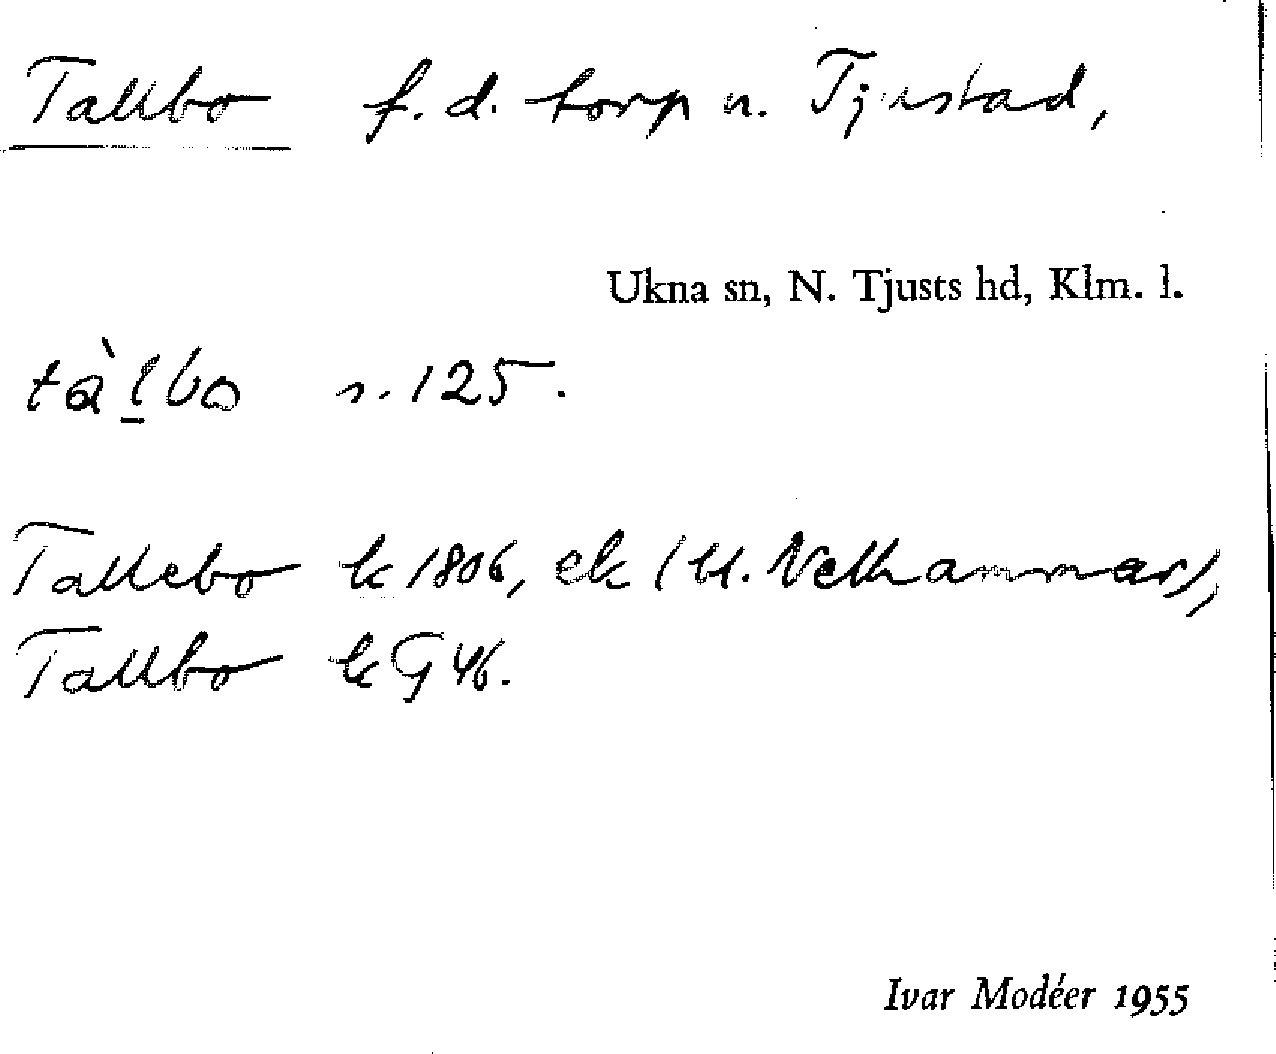 Tallbo f. d. torp u. Tjustad,
Ukna sn, N. Tjusts hd, Klm. l.
tàl̲bo s. 125.
Tallebo k 1806, ek (u. Velhammar),
Tallbo k G 46.
Ivar Modéer 1955